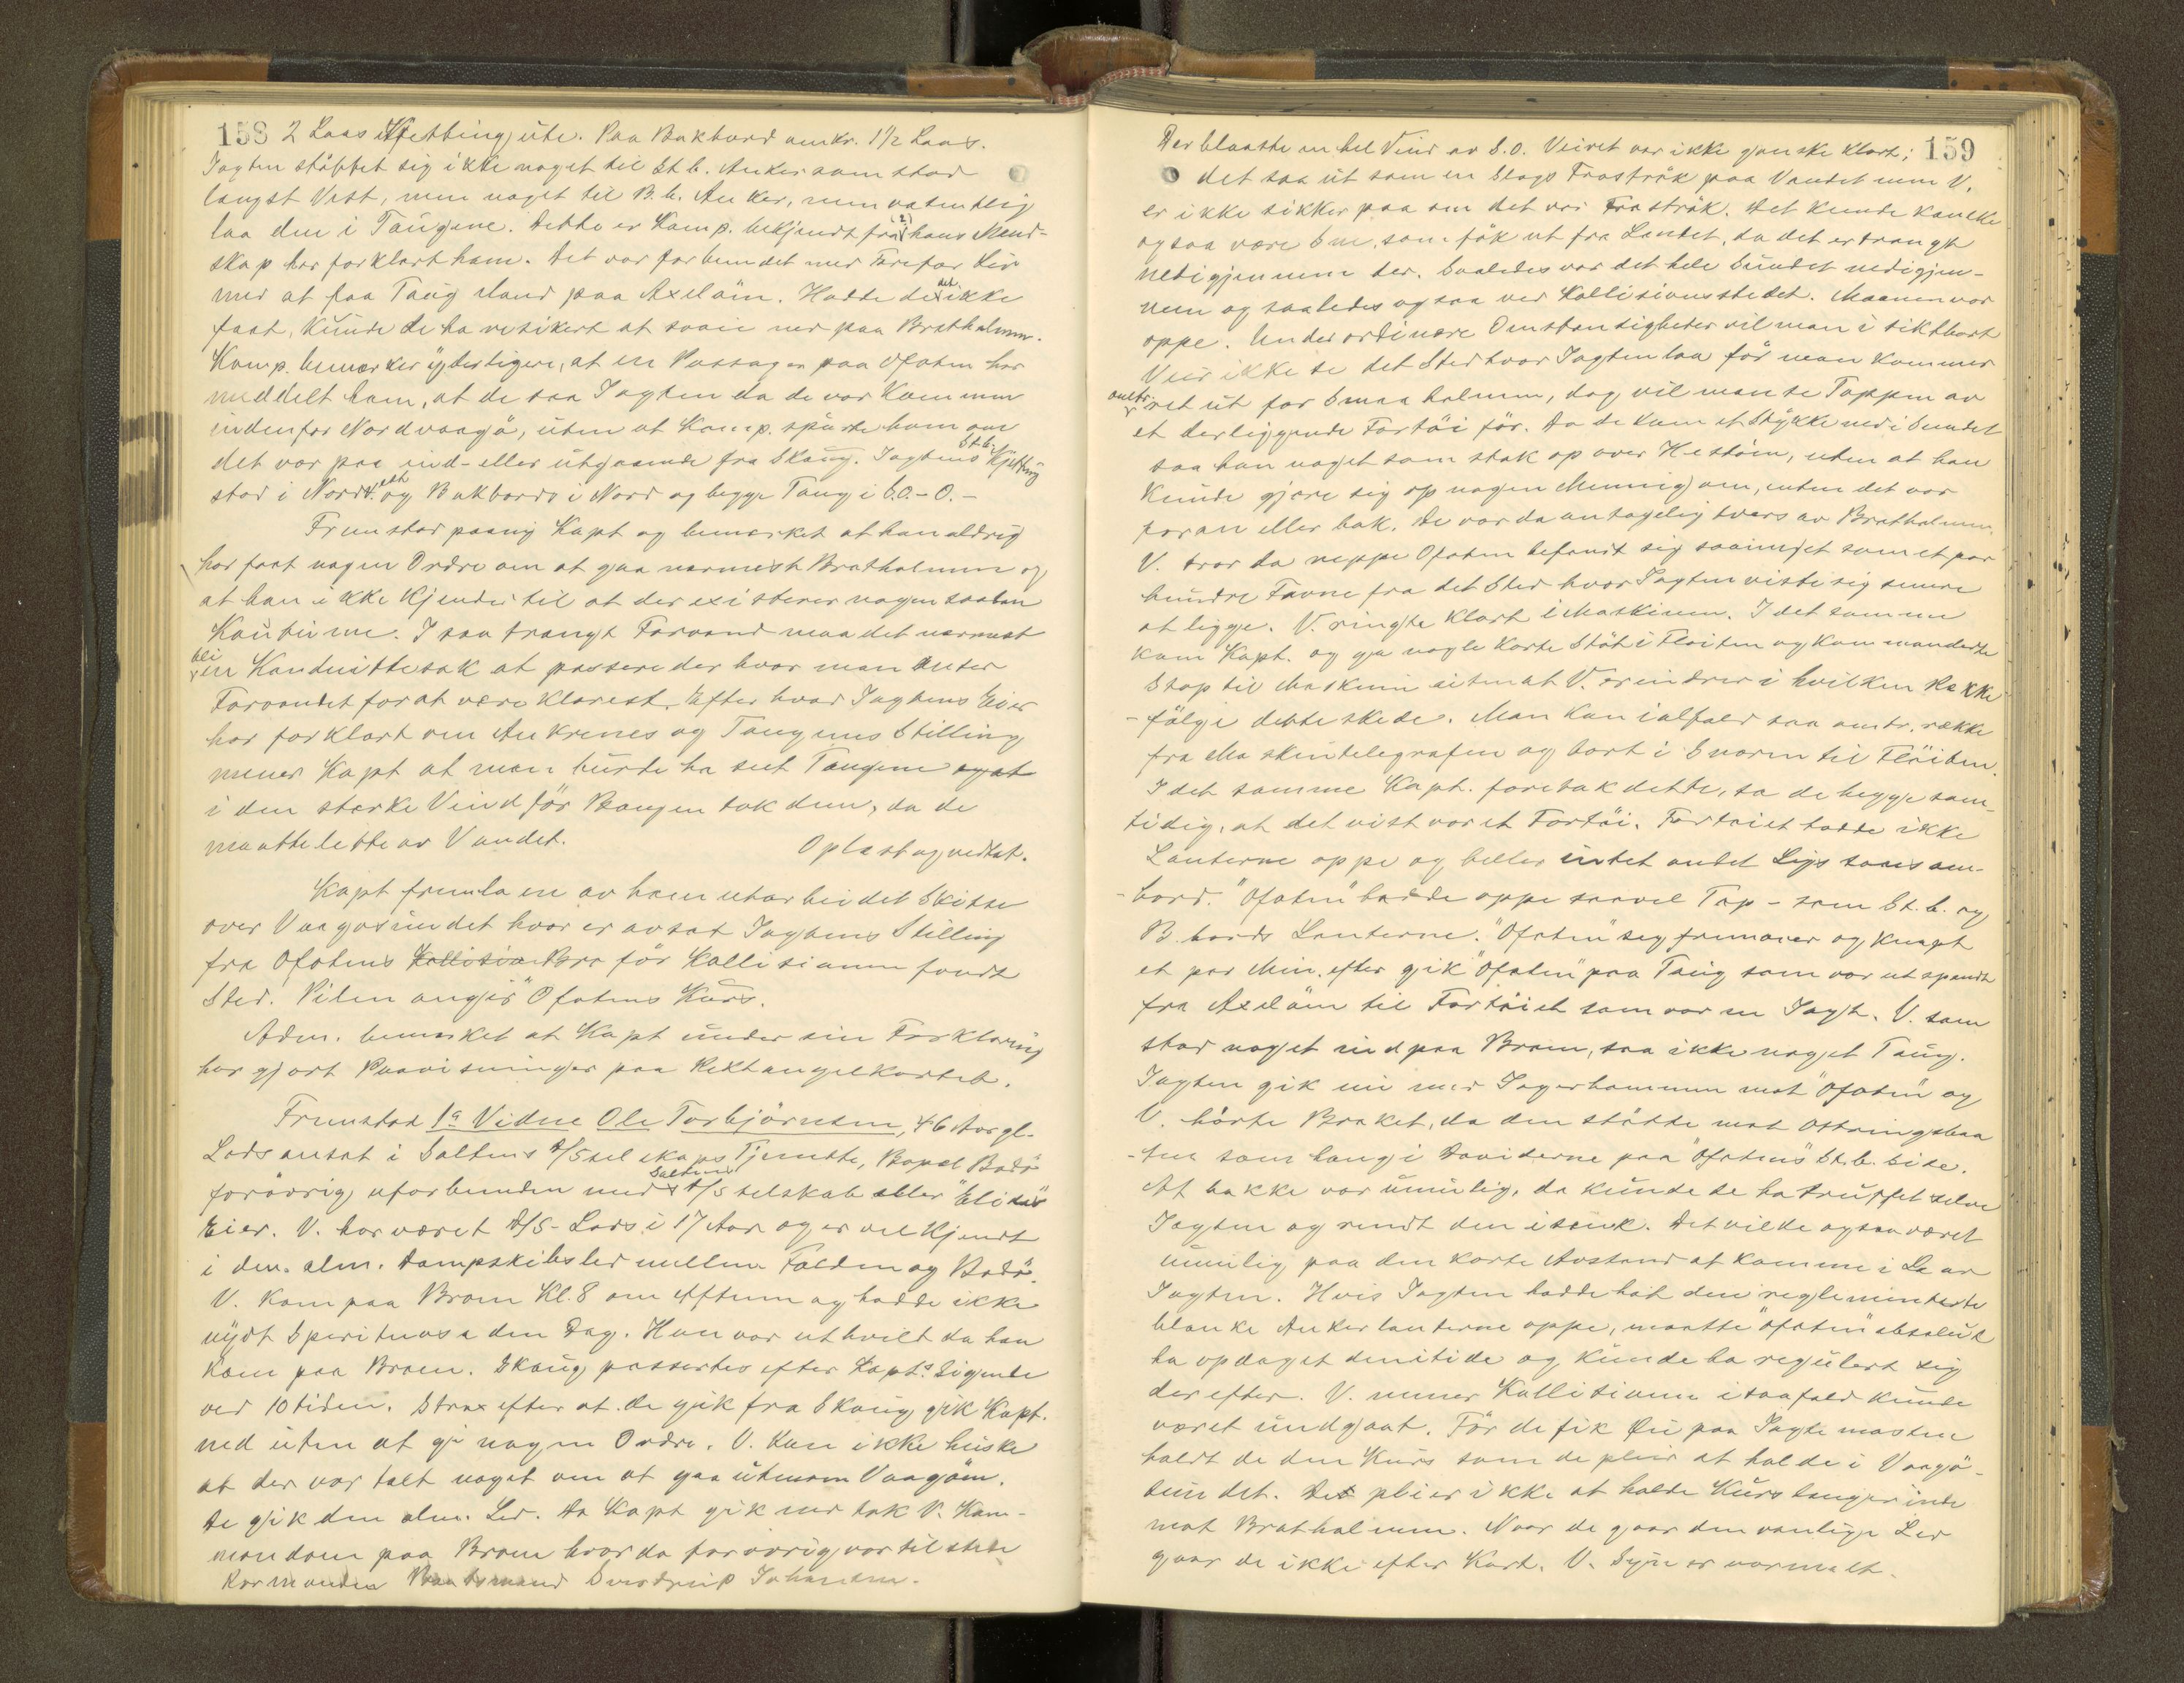 158 2 Laas Kjetting ute. Paa Bakbord omkr. 1 1/2 Laas.
Jagten støttet sig ikke noget til St.b. Anker som stod
længst Vest, men noget til B.b. Anker, men væsentlig
laa den i Taugene. Dette er Komp. bekjendt fra hans Mand-
skap har forklart ham. Det var forbundet med Fare for Liv
med at faa Taug iland paa Axeløen. Hadde de det ikke
faat, kunde de ha resikert at svaie ned paa Bratholmen.
Komp. bemærker yderligere, at en Passager paa Ofoten har
meddelt ham, at de saa Jagten da de var kommen
indenfor Nordvaagø, uten at Komp. spurte ham om
det var paa ind- eller utgaaende fra Skaug. Jagtens St.b. Kjetting
stod i Nordvest og Bakbords i Nord og begge Taug i S.O.-O.-
Fremstod paany Kapt og bemerket at han aldrig
har faat nogen Ordre om at gaa nærmest Bratholmen og
at han ikke kjender til at der existerer nogen saadan
Kutume. I saa trangt Farvand maa det nærmest
bli en Konduittesak at passere der hvor man anser
Farvandet for at være klarest. Efter hvad Jagtens Eier
har forklart om Ankrenes og Taugenes Stilling
mener Kapt at man burte ha seet Taugene og at
i den sterke Vind før Baugen tok dem, da de
maatte lette av Vandet. Oplæst og vedtat.
Kapt fremla en av ham utarbeidet Skitse
over Vaagøsundet hvor er avsat Jagtens Stilling
fra Ofotens Kollision Bro før Kollisionen fandt
Sted. Pilen angir Ofotens Kurs.
Adm. bemerket at Kapt under sin Forklaring
har gjort Paavisninger paa Rektangelkartet.
Fremstod 1ᵉ Vidne Ole Torbjörnsen, 46 Aar gl.
Lods ansat i Saltens D/Sselskaps Tjeneste, Bopæl Bodö
forövrig uforbunden med Saltens D/S selskab eller "Elidas"
Eier. V. har været D/S-Lods i 17 Aar og er vel kjendt
i den alm. Dampskibsled mellem Folden og Bodö.
V. kom paa Broen Kl. 8 om Aftenen og hadde ikke
nydt Spirituosa den Dag. Han var uthvilt da han
kom paa Broen. Skaug passertes efter Kapts. Sigende
ved 10 tiden. Strax efter at de gik fra Skaug gik Kapt.
ned uten at gi nogen Ordre. V. kan ikke huske
at der var talt noget om at gaa utenom Vaagøen.
De gik den alm. Led. Da Kapt gik ned tok V. Kom-
mandoen paa Broen hvor da forövrig var tilstede
Rormanden Baadsmand Sverdrup Johansen.
159
Der blaaste en hel Vind av S.O. Veiret var ikke ganske klart;
det saa ut som en Slags Froströk paa Vandet men V.
er ikke sikker paa om det var Froströk. Det kunde kanske
ogsaa være Sne, som fök ut fra Landet, da det er trangt
nedigjennem der. Saaledes var det hele Sundet nedigjen-
nem og saaledes ogsaa ved Kollisionsstedet. Maanen var
oppe. Under ordinære Omstændigheter vil man i siktbart
Veir ikke se det Sted hvor Jagten laa för man kommer
omtr. ret ut for Smaaholmen, dog vil man se Toppen av
et derliggende Fartöi för. Da de kom et Stykke ned i Sundet
saa han noget som stak op over Hestöen, uten at han
kunde gjøre sig op nogen Mening om, enten det var
foran eller bak. De var da antagelig tvers av Bratholmen.
V. tror da neppe Ofoten befandt sig saameget som et par
hundre Favne fra det Sted hvor Jagten viste sig senere
at ligge. V. ringte Klart i Maskinen. I det samme
kom Kapt. og ga nogle korte Støt i Fløiten og kommanderte
Stop til Maskinen uten at V. erindrer i hvilken Række-
-fölge dette skede. Man kan ialfald saa omtr. række
fra Maskintelegrafen og bort i Snoren til Flöiten.
I det samme Kapt. foretok dette, sa de begge sam-
tidig, at det vist var et Fartöi. Fartøiet hadde ikke
Lanterne oppe og heller intet andet Lys saaes om-
-bord. "Ofoten" hadde oppe saavel Top- som St.b. og
B.bords Lanterne. "Ofoten" seg fremover og knapt
et par Min. efter gik "Ofoten" paa Taug som var utspændt
fra Axelöen til Fartöiet som var en Jagt. V. som
stod noget ind paa Broen, saa ikke noget Taug.
Jagten gik nu med Jagerbommen mot "Ofoten" og
V. hörte Braket, da den støtte mot Ottringsbaa-
-ten som hang i Daviderne paa "Ofotens" St.b. side.
At bakke var umulig, da kunde de ha truffet selve
Jagten og rendt den isænk. Det vilde ogsaa været
umulig paa den korte Avstand at komme i Læ av
Jagten. Hvis Jagten hadde hat den reglementerte
blanke Ankerlanterne oppe, maatte "Ofoten" absolut
ha opdaget den itide og kunde ha regulert sig
derefter. V. mener Kollisionen isaafald kunde
været undgaat. Før de fik Øie paa Jagtemasten
holdt de den Kurs som de pleier at holde i Vaagö-
sundet. De pleier ikke at holde Kurs længer inde
mot Bratholmen. Naar de gaar den vanlige Led
gaar de ikke efter Kart. V. Syn er normalt.